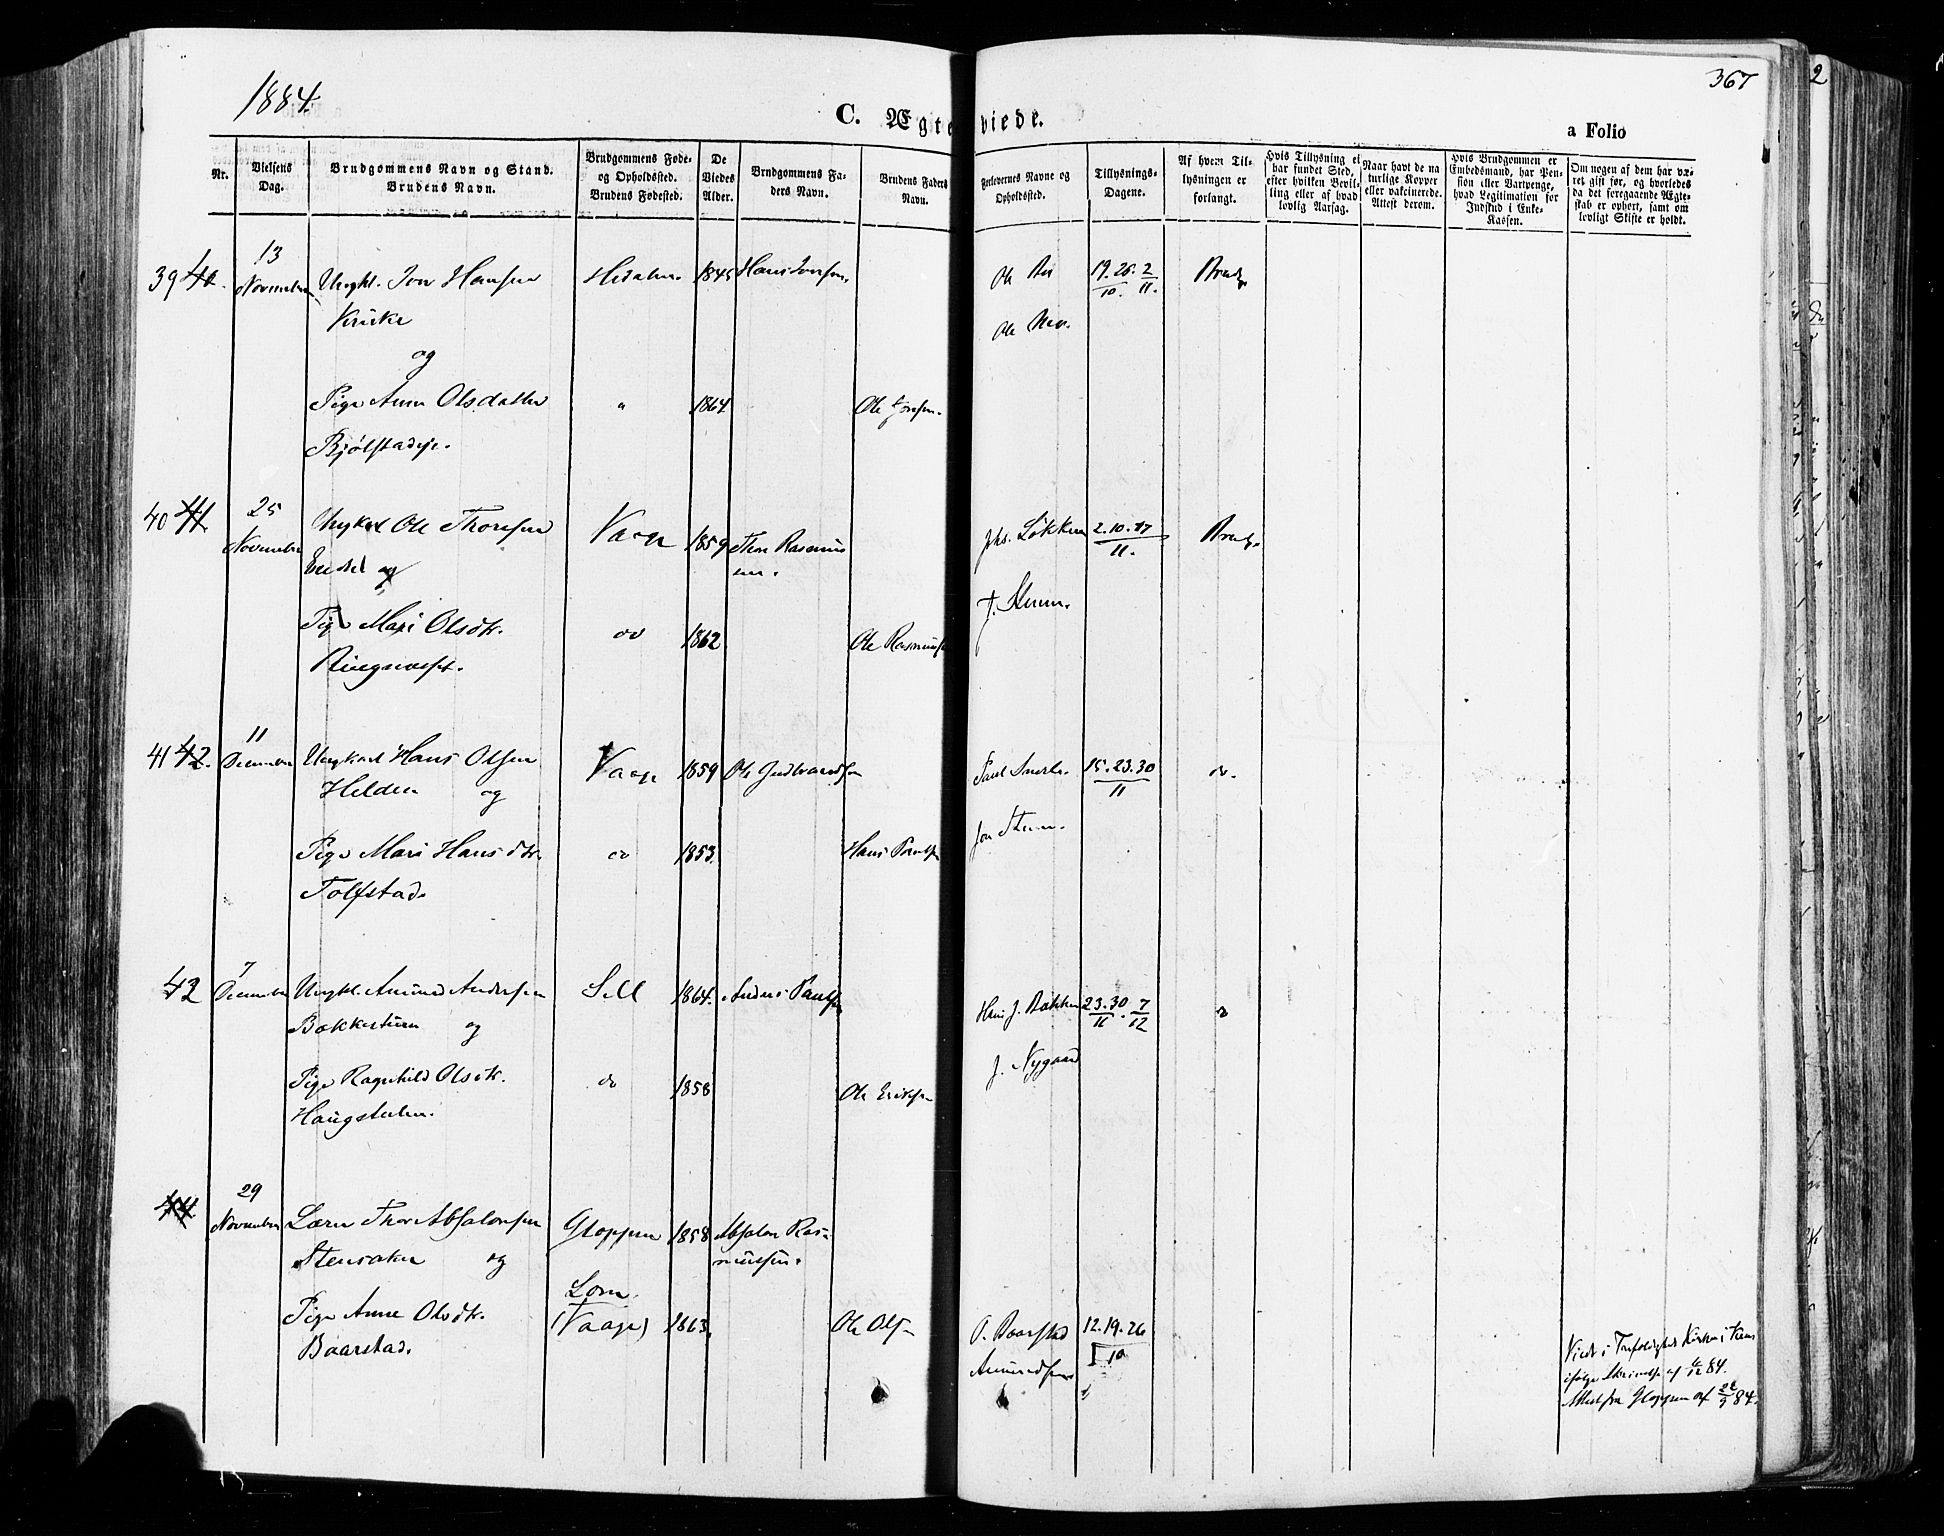 1884.
367
2
C. Ægteviede.
a Folio
Nr.
Vielsens Dag.
Brudgommens Navn og Stand. Brudens Navn.
Brudgommens Føde- og Opholdssted. Brudens Fødested.
De Viedes Alder.
Brudgommens Faders Navn.
Brudens Faders Navn.
Forlovernes Navne og Opholdssted.
Tillysnings-Dagene.
Af hvem Tillysningen er forlangt.
Hvis Tillysning ei har fundet Sted, efter hvilken Bevilling eller af hvad lovlig Aarsag.
Naar havt de naturlige Kopper eller vakcinerede. Attest derom.
Hvis Brudgommen er Embedsmand, har Pension eller Vartpenge, hvad Legitimation for Indskud i Enke-Kassen.
Om nogen af dem har været gift før, og hvorledes da det foregaaende Ægteskab er ophørt, samt om lovligt Skifte er holdt.
39 40. 13 November Ungkl. Iver Hansen Hedalen. 1845 Hans Iversen. Ole 19. 26. 2 Brudg.
10. 11.
Kruke Ole
og
Pige Anne Olsdatter " 1864
Bjølstadeje.
40 41. 25 November Ungkarl Ole Thoresen Vaage 1859 Thor Rasmussen. Jhs. Løkken 2. 10. 17 Brudg.
11.
og
Pige Mari Olsdtr. do 1862 Ole Rasmuss
41 42. 11 December Ungkarl Hans Olsen Vaage 1859 Ole Gudbrandsen 15. 23. 30 do.
11
Helden og
Pige Mari Hansdtr. do 1853. Hans Paulsen
Tolfstad.
42 7 December Ungkl. Amund Andersen Sell 1864. Anders Paulsen Hans J. Bakken 23. 30. 7 do
11 12
Bakkesturn og J. Nygaard
Pige Ragnhild Olsdtr. do 1858 Ole Eriksen
Haugstulen.
44 29 November Lærer Thor Absalonsen Gloppen 1858 Absalon Rasmussen.
Stensaker og
Pige Anne Olsdtr. Lom (Vaage) 1863. Ole Olsen O. Baarstad 12. 19. 26
10
Baarstad. Amundsen
Viedt i Trefoldigheds Kirken i
ifølge Skrivelse af 84.
Attest fra Gloppen af 84.